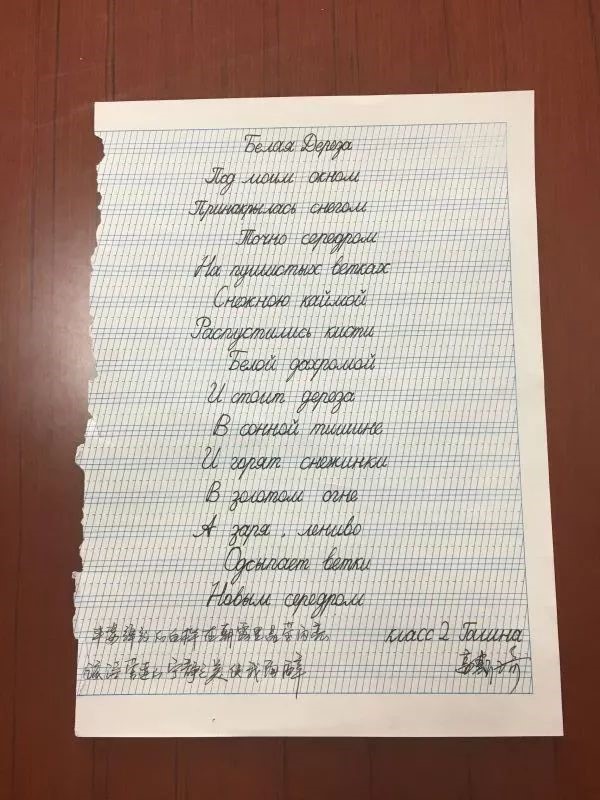 Белая Дереза
Под моим окном
Принакрылась снегом
Точно середром
На пушистых ветках
Снежною каймой
Распустились кисти
Белой дахромой
И стоит дереза
В сонной тишине
И горят снежинки
В золотом огне
А заря, лениво
Одсыпает ветки
Новым середром
класс 2 Галина
的白桦在朝霞里晶莹闪亮
宁静之美使我陶醉